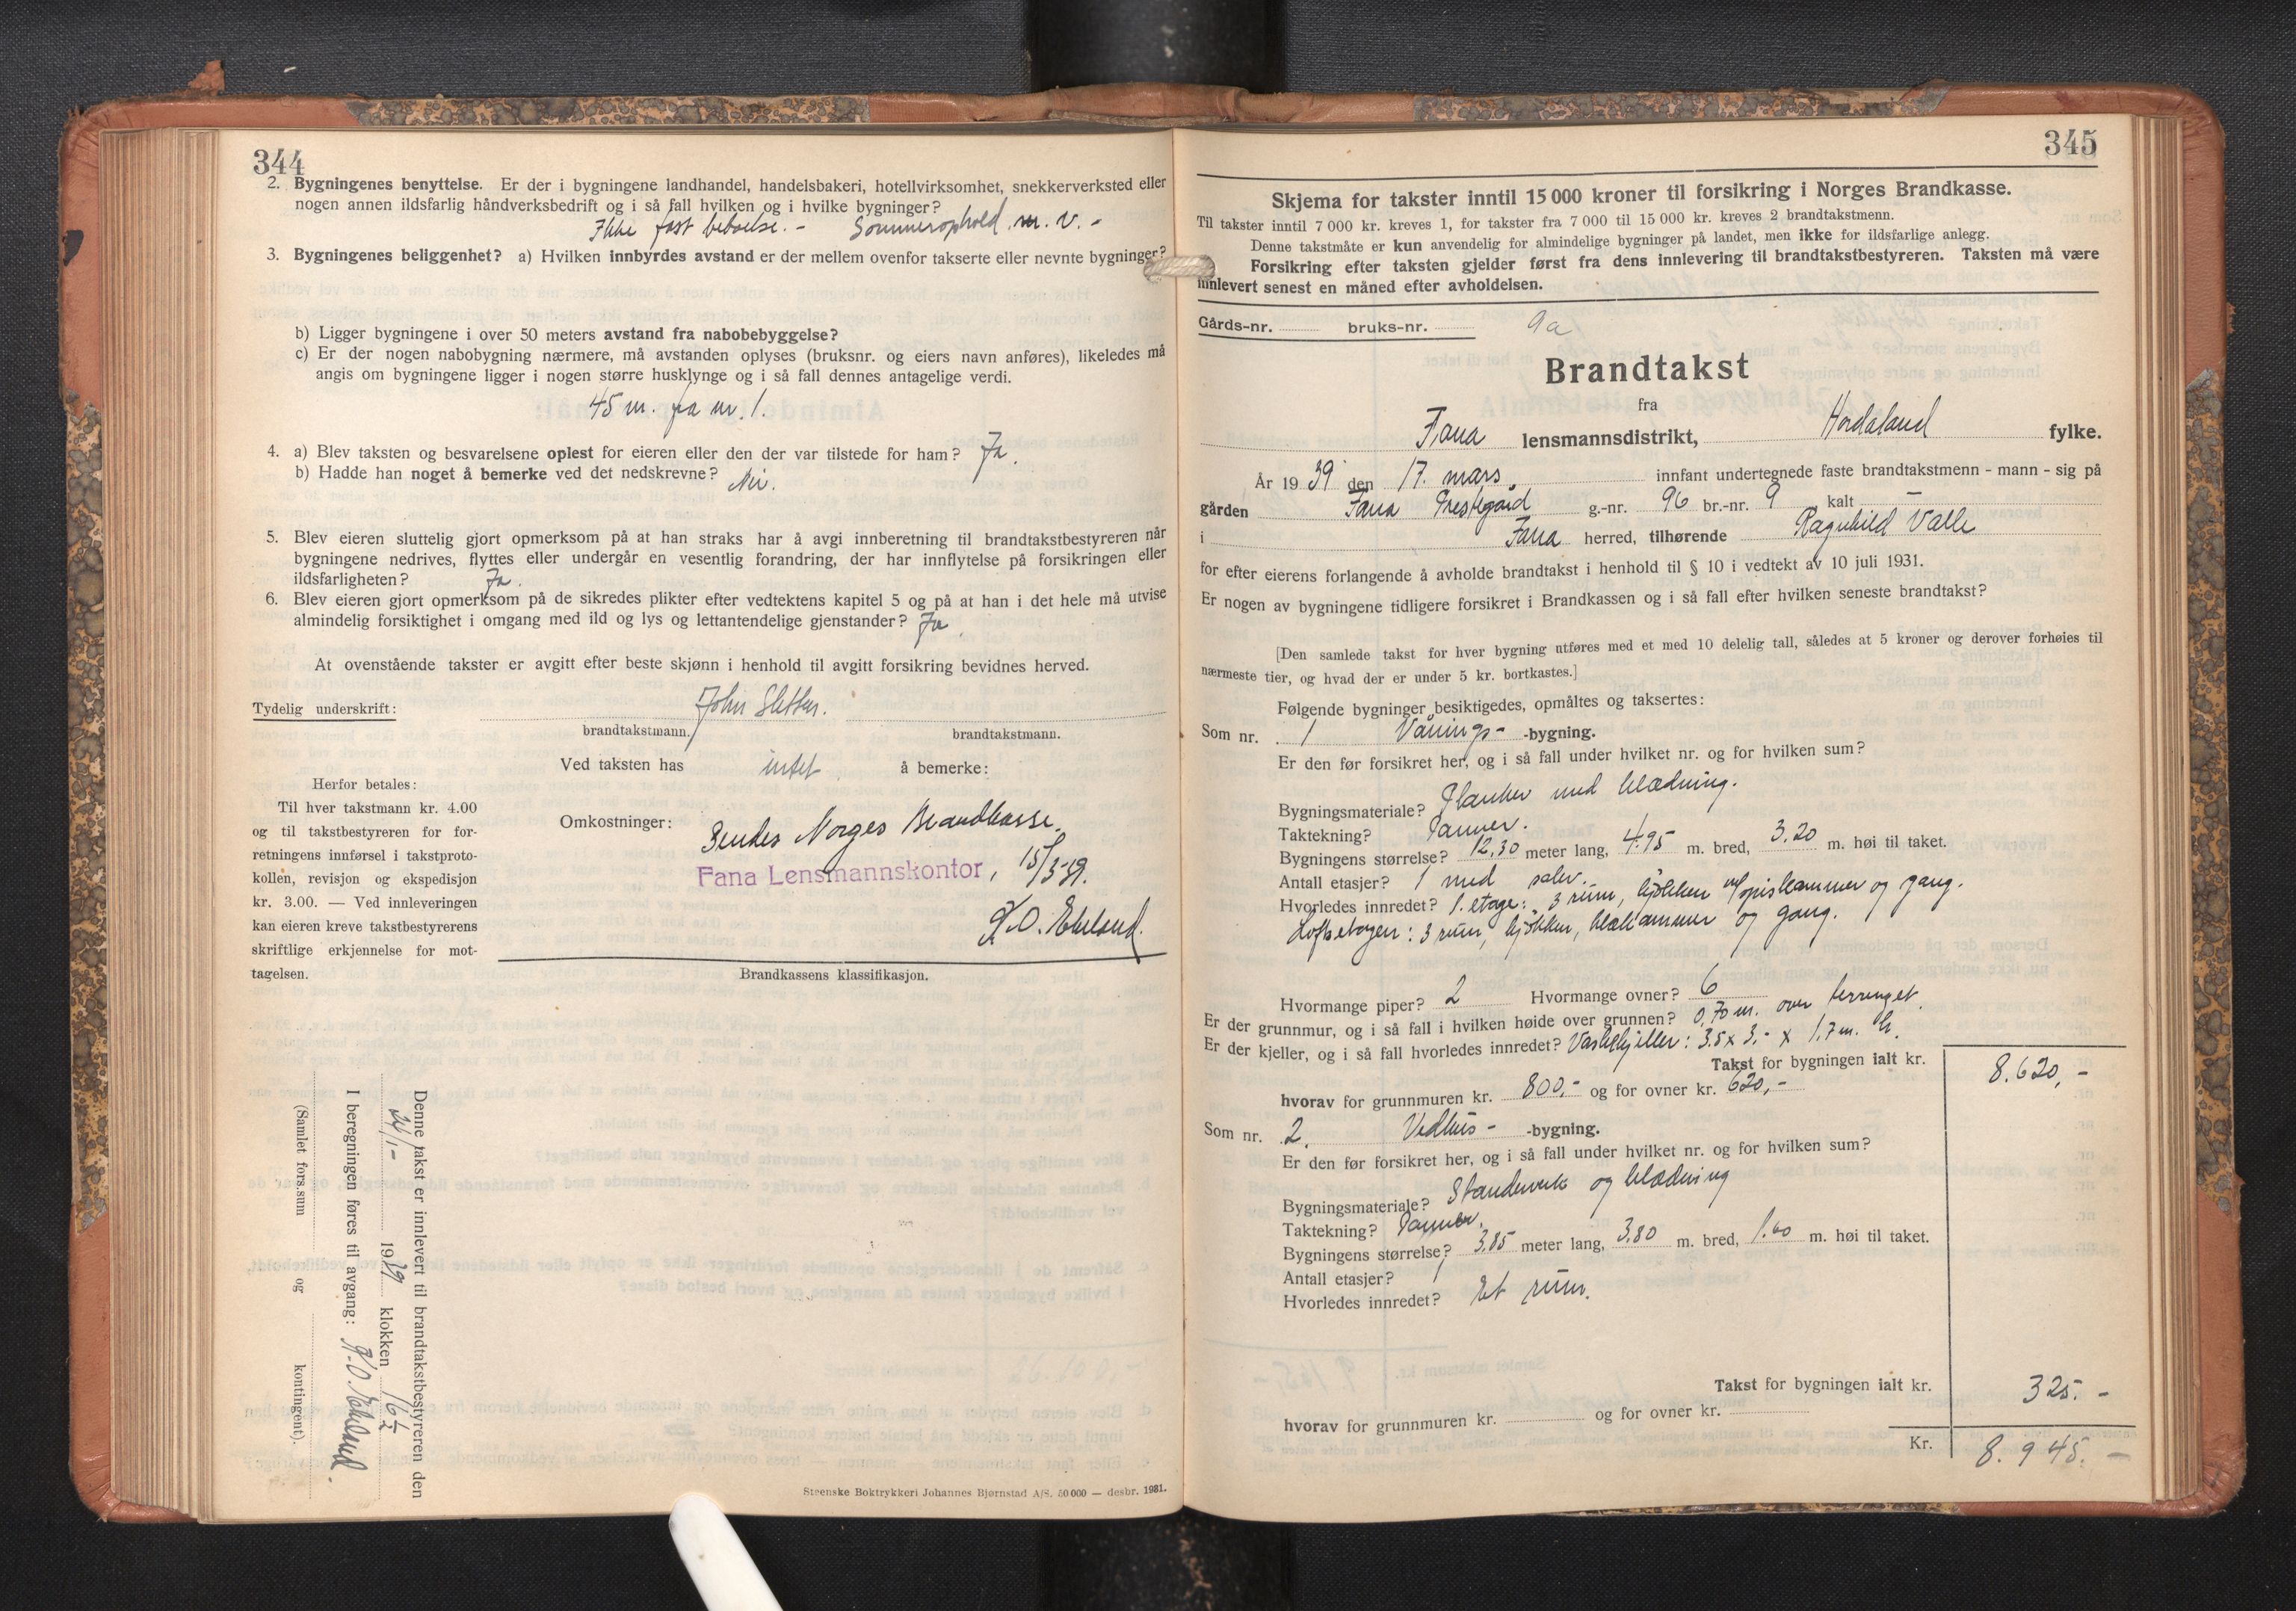 344
2. Bygningenes benyttelse. Er der i bygningene landhandel, handelsbakeri, hotellvirksomhet, snekkerverksted eller
nogen annen ildsfarlig håndverksbedrift og i så fall hvilken og i hvilke bygninger?
Ikke fast beboelse. - Sommerophold m. v. -
3. Bygningenes beliggenhet? a) Hvilken innbyrdes avstand er der mellem ovenfor takserte eller nevnte bygninger?
b) Ligger bygningene i over 50 meters avstand fra nabobebyggelse?
c) Er der nogen nabobygning nærmere, må avstanden oplyses (bruksnr. og eiers navn anføres), likeledes må
angis om bygningene ligger i nogen større husklynge og i så fall dennes antagelige verdi.
45 m. fra nr. 1.
4. a) Blev taksten og besvarelsene oplest for eieren eller den der var tilstede for ham? Ja.
b) Hadde han noget å bemerke ved det nedskrevne? Nei.
5. Blev eieren sluttelig gjort opmerksom på at han straks har å avgi innberetning til brandtakstbestyreren når
bygningene nedrives, flyttes eller undergår en vesentlig forandring, der har innflytelse på forsikringen eller
ildsfarligheten? Ja.
6. Blev eieren gjort opmerksom på de sikredes plikter efter vedtektens kapitel 5 og på at han i det hele må utvise
almindelig forsiktighet i omgang med ild og lys og lettantendelige gjenstander? Ja
At ovenstående takster er avgitt efter beste skjønn i henhold til avgitt forsikring bevidnes herved.
Tydelig underskrift: John Sletten.
brandtakstmann. brandtakstmann.
Ved taksten has intet å bemerke:
Herfor betales:
Til hver takstmann kr. 4.00
og til takstbestyreren for for-
retningens innførsel i takstproto-
kollen, revisjon og ekspedisjon
kr. 3.00. — Ved innleveringen
kan eieren kreve takstbestyrerens
skriftlige erkjennelse for mot-
tagelsen.
Omkostninger:
Sendes Norges Brandkasse.
Fana Lensmannskontor, 15/3-39.
Brandkassens klassifikasjon.
Denne takst er innlevert til brandtakstbestyreren den
24/- 1939 klokken 16½
I beregningen føres til avgang:
(Samlet fors.sum og kontingent).
Steenske Boktrykkeri Johannes Bjørnstad A/S. 50 000 — desbr. 1931.
345
Skjema for takster inntil 15 000 kroner til forsikring i Norges Brandkasse.
Til takster inntil 7 000 kr. kreves 1, for takster fra 7 000 til 15 000 kr. kreves 2 brandtakstmenn.
Denne takstmåte er kun anvendelig for almindelige bygninger på landet, men ikke for ildsfarlige anlegg.
Forsikring efter taksten gjelder først fra dens innlevering til brandtakstbestyreren. Taksten må være
innlevert senest en måned efter avholdelsen.
Gårds-nr. bruks-nr. 9a
Brandtakst
fra
Fana lensmannsdistrikt, Hordaland fylke.
År 1939 den 17. mars innfant undertegnede faste brandtakstmenn - mann - sig på
gården Fana Prestegård g.-nr. 96 br.-nr. 9 kalt —
i Fana herred, tilhørende Ragnhild Valle
for efter eierens forlangende å avholde brandtakst i henhold til § 10 i vedtekt av 10 juli 1931.
Er nogen av bygningene tidligere forsikret i Brandkassen og i så fall efter hvilken seneste brandtakst?
[Den samlede takst for hver bygning utføres med et med 10 delelig tall, således at 5 kroner og derover forhøies til
nærmeste tier, og hvad der er under 5 kr. bortkastes.]
Følgende bygninger besiktigedes, opmåltes og taksertes:
Som nr. 1 Vånings- -bygning.
Er den før forsikret her, og i så fall under hvilket nr. og for hvilken sum?
Bygningsmateriale? Planker med klædning.
Taktekning? Panner.
Bygningens størrelse? 12,30 meter lang, 4.95 m. bred, 3.20 m. høi til taket.
Antall etasjer? 1 med
Hvorledes innredet? 1. etage: 3 rum, kjøkken m/spiskammer og gang.
Loftsetagen: 3 rum, kjøkken, klækammer og gang.
Hvormange piper? 2 Hvormange ovner? 6
Er der grunnmur, og i så fall i hvilken høide over grunnen? 0,70 m. over terrenget.
Er der kjeller, og i så fall hvorledes innredet? Vaskekjeller: 3.5 x 3,- x 1,7 m. h.
Takst for bygningen ialt kr. 8.620,-
hvorav for grunnmuren kr. 800,- og for ovner kr. 620,-
Som nr. 2. Vedhus- -bygning.
Er den før forsikret her, og i så fall under hvilket nr. og for hvilken sum?
Bygningsmateriale? Standerverk og klædning
Taktekning? Panner.
Bygningens størrelse? 3,85 meter lang, 3.80 m. bred, 1.60 m. høi til taket.
Antall etasjer? 1
Hvorledes innredet? Et rum.
Takst for bygningen ialt kr. 325.-
hvorav for grunnmuren kr. og for ovner kr.
Kr. 8.945.-